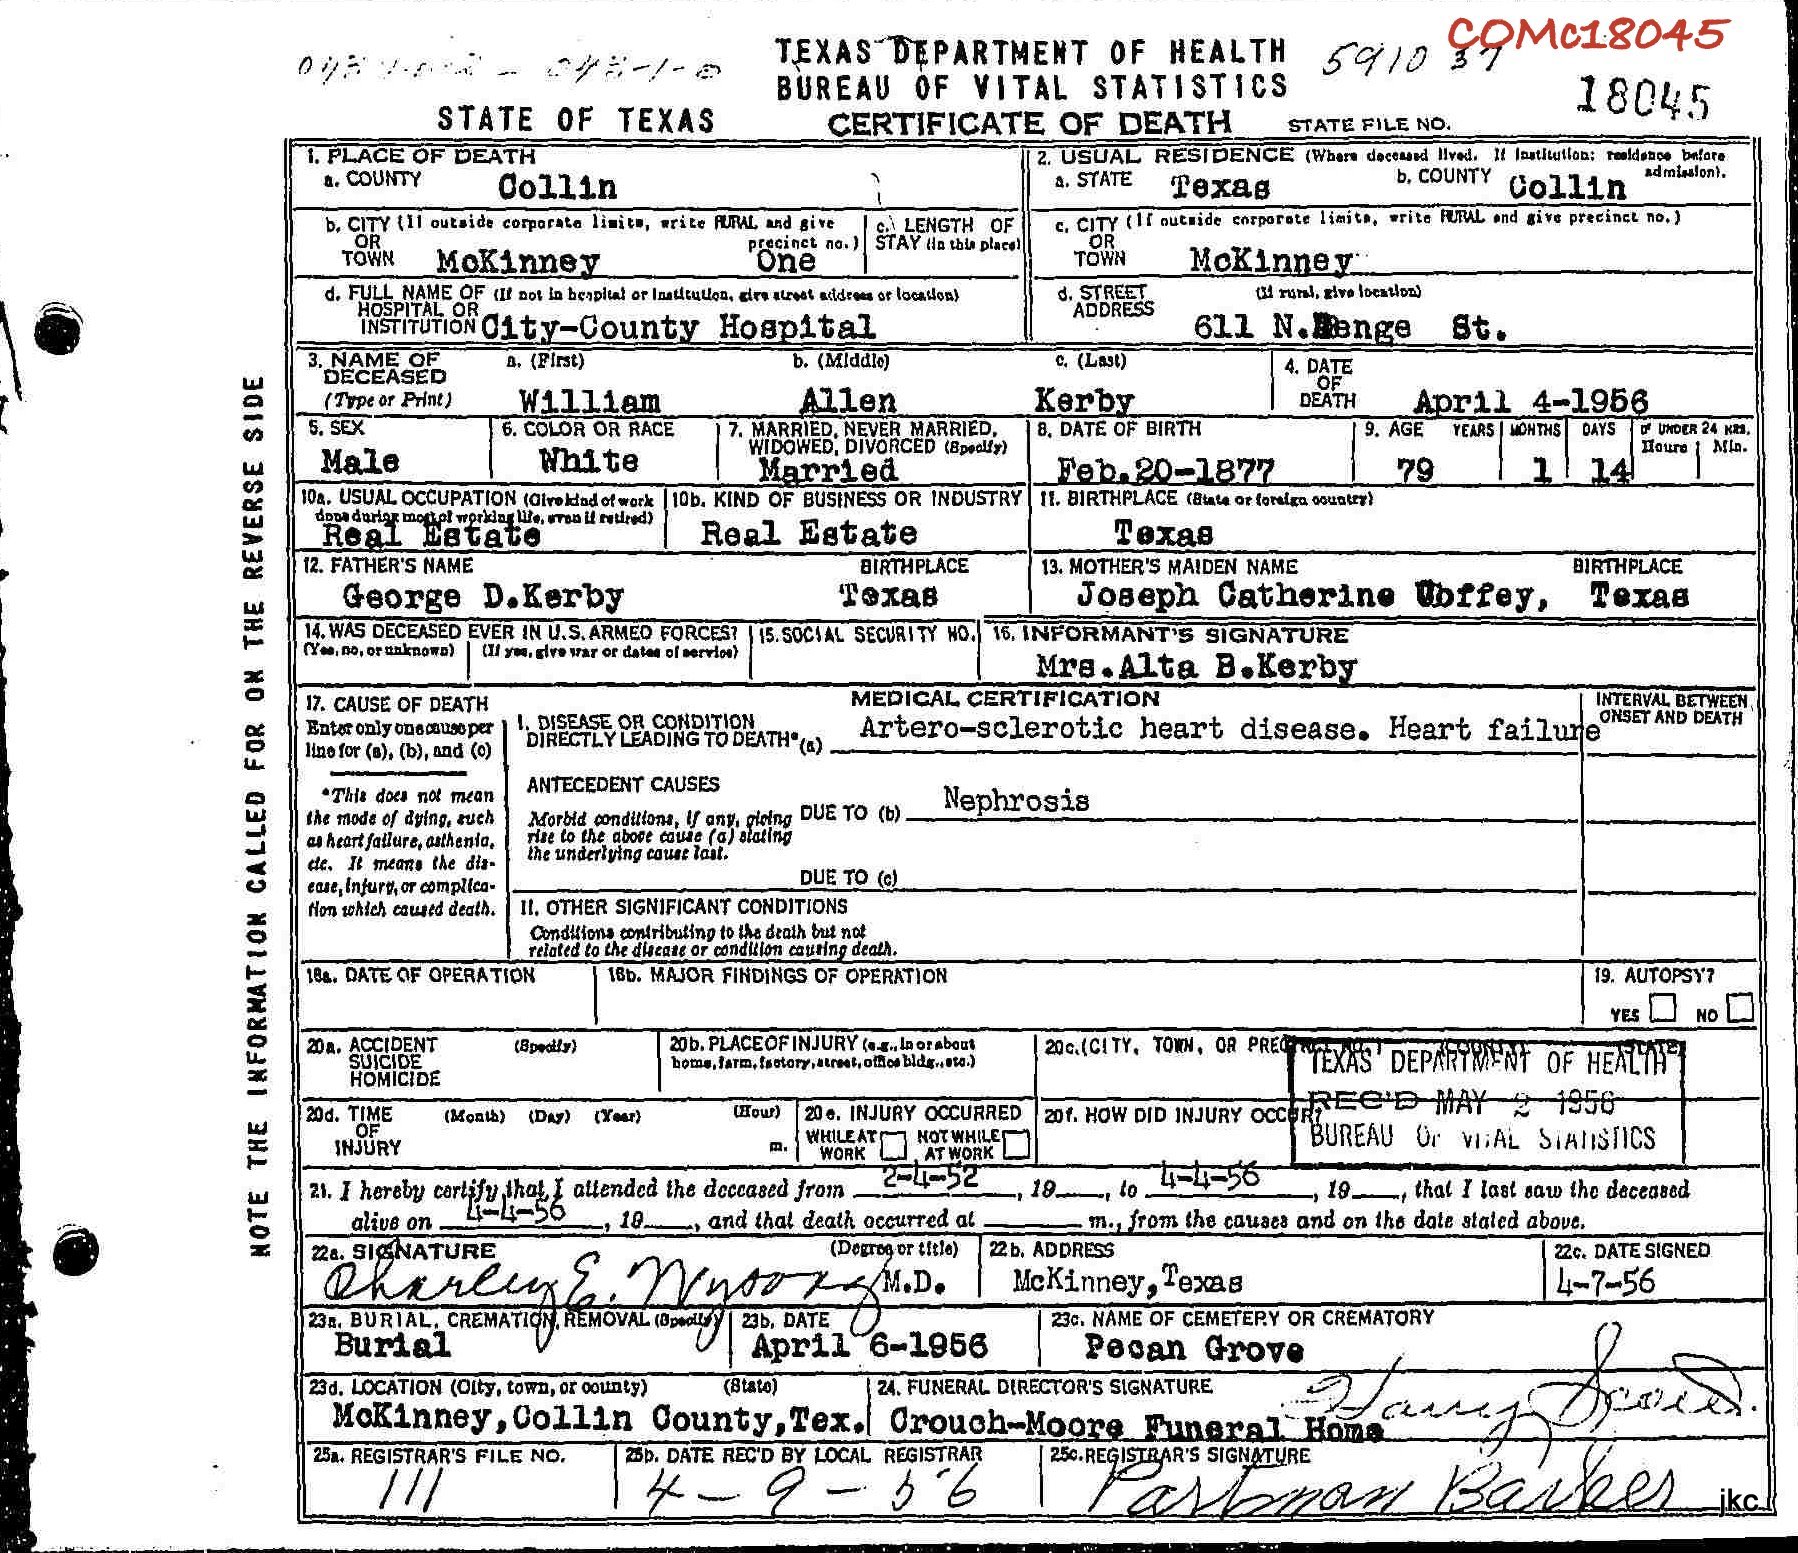 COMc18045
TEXAS DEPARTMENT OF HEALTH
5910 37
BUREAU OF VITAL STATISTICS
18045
STATE OF TEXAS
CERTIFICATE OF DEATH
STATE FILE NO.
NOTE THE INFORMATION CALLED FOR ON THE REVERSE SIDE
1. PLACE OF DEATH
a. COUNTY Collin
2. USUAL RESIDENCE (Where deceased lived. If institution: residence before admission).
a. STATE Texas b. COUNTY Collin
b. CITY (If outside corporate limits, write RURAL and give precinct no.)
OR
TOWN McKinney One
c. LENGTH OF STAY (in this place)
c. CITY (If outside corporate limits, write RURAL and give precinct no.)
OR
TOWN McKinney
d. FULL NAME OF (If not in hospital or institution, give street address or location)
HOSPITAL OR
INSTITUTION City-County Hospital
d. STREET (If rural, give location)
ADDRESS 611 N. Benge St.
3. NAME OF DECEASED (Type or Print)
a. (First) b. (Middle) c. (Last)
William Allen Kerby
4. DATE OF DEATH April 4-1956
5. SEX Male
6. COLOR OR RACE White
7. MARRIED, NEVER MARRIED, WIDOWED, DIVORCED (Specify) Married
8. DATE OF BIRTH Feb.20-1877
9. AGE YEARS 79 MONTHS 1 DAYS 14 IF UNDER 24 HRS. Hours Min.
10a. USUAL OCCUPATION (Give kind of work done during most of working life, even if retired)
Real Estate
10b. KIND OF BUSINESS OR INDUSTRY
Real Estate
11. BIRTHPLACE (State or foreign country)
Texas
12. FATHER'S NAME BIRTHPLACE
George D.Kerby Texas
13. MOTHER'S MAIDEN NAME BIRTHPLACE
Joseph Catherine Coffey, Texas
14. WAS DECEASED EVER IN U.S. ARMED FORCES?
(Yes, no, or unknown) (If yes, give war or dates of service)
15. SOCIAL SECURITY NO.
16. INFORMANT'S SIGNATURE
Mrs.Alta B.Kerby
17. CAUSE OF DEATH
Enter only one cause per line for (a), (b), and (c)
*This does not mean the mode of dying, such as heart failure, asthenia, etc. It means the disease, injury, or complication which caused death.
MEDICAL CERTIFICATION
INTERVAL BETWEEN ONSET AND DEATH
I. DISEASE OR CONDITION
DIRECTLY LEADING TO DEATH* (a) Artero-sclerotic heart disease. Heart failure
ANTECEDENT CAUSES
Morbid conditions, if any, giving rise to the above cause (a) stating the underlying cause last.
DUE TO (b) Nephrosis
DUE TO (c)
II. OTHER SIGNIFICANT CONDITIONS
Conditions contributing to the death but not related to the disease or condition causing death.
18a. DATE OF OPERATION
18b. MAJOR FINDINGS OF OPERATION
19. AUTOPSY?
YES NO
20a. ACCIDENT (Specify)
SUICIDE
HOMICIDE
20b. PLACE OF INJURY (e.g., in or about home, farm, factory, street, office bldg., etc.)
20c. (CITY, TOWN, OR PRECINCT NO.) (COUNTY) (STATE)
TEXAS DEPARTMENT OF HEALTH
REC'D MAY 2 1956
BUREAU OF VITAL STATISTICS
20d. TIME (Month) (Day) (Year) (Hour)
OF
INJURY m.
20e. INJURY OCCURRED
WHILE AT WORK NOT WHILE AT WORK
20f. HOW DID INJURY OCCUR?
21. I hereby certify that I attended the deceased from 2-4-52, 19, to 4-4-56, 19, that I last saw the deceased
alive on 4-4-56, 19, and that death occurred at m., from the causes and on the date stated above.
22a. SIGNATURE (Degree or title)
Charley E. Wysong M.D.
22b. ADDRESS
McKinney, Texas
22c. DATE SIGNED
4-7-56
23a. BURIAL, CREMATION, REMOVAL (Specify)
Burial
23b. DATE
April 6-1956
23c. NAME OF CEMETERY OR CREMATORY
Pecan Grove
23d. LOCATION (City, town, or county) (State)
McKinney, Collin County, Tex.
24. FUNERAL DIRECTOR'S SIGNATURE
Crouch-Moore Funeral Home Harry
25a. REGISTRAR'S FILE NO.
111
25b. DATE REC'D BY LOCAL REGISTRAR
4-9-56
25c. REGISTRAR'S SIGNATURE
jkc